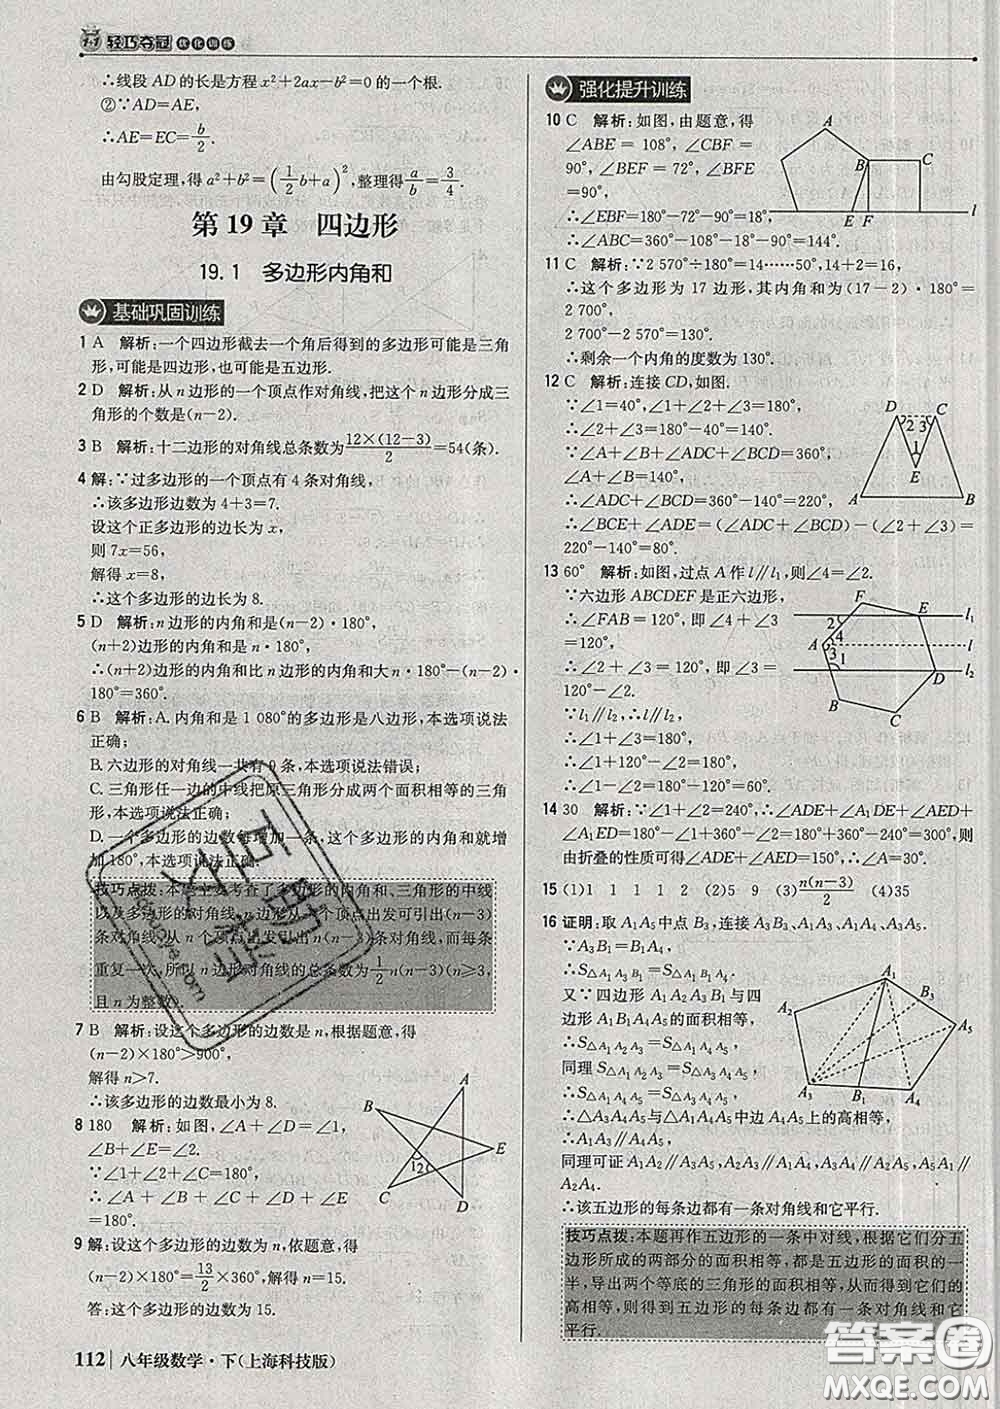 1+1 轻巧夺冠 优化训练
∴线段 AD 的长是方程 x²+2ax-b²=0 的一个根.
②∵AD=AE,
∴AE=EC=b/2.
由勾股定理,得 a²+b²=(1/2 b+a)²,整理得 a/b=3/4.
第 19 章　四边形
19.1　多边形内角和
基础巩固训练
1 A　解析:一个四边形截去一个角后得到的多边形可能是三角
形,可能是四边形,也可能是五边形.
2 D　解析:从 n 边形的一个顶点作对角线,把这个 n 边形分成三
角形的个数是(n-2).
3 B　解析:十二边形的对角线总条数为 12×(12-3)/2=54(条).
4 解:∵过多边形的一个顶点有 4 条对角线,
∴该多边形边数为 4+3=7.
设这个正多边形的边长为 x,
则 7x=56,
解得 x=8,
∴这个多边形的边长为 8.
5 D　解析:n 边形的内角和是(n-2)·180°,
(n+2)边形的内角和是 n·180°,
∴(n+2)边形的内角和比 n 边形的内角和大 n·180°-(n-2)·
180°=360°.
6 B　解析:A. 内角和是 1 080°的多边形是八边形,本选项说法
正确;
B. 六边形的对角线一共有 9 条,本选项说法错误;
C. 三角形任一边的中线把原三角形分成两个面积相等的三角
形,本选项说法正确;
D. 一个多边形的边数每增加一条,这个多边形的内角和就增
加 180°,本选项说法正确.
技巧点拨:本题主要考查了多边形的内角和、三角形的中线
以及多边形的对角线,n 边形从一个顶点出发可引出(n-3)
条对角线,从 n 个顶点出发可引出 n(n-3)条对角线,而每条
重复一次,所以 n 边形对角线的总条数为 1/2 n(n-3)(n≥3,
且 n 为整数).
7 B　解析:设这个多边形的边数是 n,根据题意,得
(n-2)×180°>900°,
解得 n>7.
∴该多边形的边数最小为 8.
8 180　解析:如图,∠A+∠D=∠1,
∠B+∠E=∠2.
∵∠1+∠2+∠C=180°,
∴∠A+∠B+∠C+∠D+∠E
=180°.
A
B
E
1 2
C
D
9 解:设这个多边形的边数为 n,依题意,得
(n-2)×180°=13/2×360°,解得 n=15.
答:这个多边形的边数为 15.
112 八年级数学·下(上海科技版)
强化提升训练
10 C　解析:如图,由题意,得
∠ABE = 108°,∠CBF =
90°,∠BEF = 72°,∠BFE
=90°,
∴∠EBF=180°-72°-90°=18°,
∴∠ABC=360°-108°-18°-90°=144°.
B
C
E
F
l
11 C　解析:∵2 570°÷180°=14……50°,14+2=16,
∴这个多边形为 17 边形,其内角和为(17-2)·180°=
2 700°,
2 700°-2 570°=130°.
∴剩余一个内角的度数为 130°.
12 C　解析:连接 CD,如图.
∵∠1=40°,∠1+∠2+∠3=180°,
∴∠2+∠3=180°-40°=140°.
∵∠A+∠B=140°,
∴∠ADC+∠BCD=360°-140°=220°,
∴∠BCE+∠ADE=(∠ADC+∠BCD)-(∠2+∠3)=
220°-140°=80°.
D
C
2 3
1
E
A
B
13 60°　解析:如图,过点 A 作 l∥l₁,则∠4=∠2.
∵六边形 ABCDEF 是正六边形,
∴∠FAB = 120°,即∠4 + ∠3
=120°,
∴∠3 + ∠2 = 120°, 即 ∠3 =
120°-∠2.
∵l₁∥l₂,∴l∥l₂,
∴∠1+∠3=180°,
∴∠1+120°-∠2=180°,
∴∠1-∠2=180°-120°=60°.
F
E
l₁
2
4
A
3
l
1
D
l₂
B
C
14 30　解析:∵∠1+∠2=240°,∴∠ADE+∠A₁DE+∠AED+
∠A₁ED=180°-∠1+180°-∠2=180°+360°-240°=300°,则
由折叠的性质可得∠ADE+∠AED=150°,∴∠A=30°.
15 (1)1　1　1　2　(2)5　9　(3)n(n-3)/2　(4)35
16 证明:取 A₁A₅ 中点 B₃,连接 A₃B₃、A₁A₃、A₁A₄、A₃A₅.
∵A₃B₁=B₁A₄,
∴S△A₁A₃B₁=S△A₁B₁A₄.
又∵四边形 A₁A₂A₃B₁ 与四
边形 A₁B₁A₄A₅ 的面积相等,
∴S△A₁A₂A₃=S△A₁A₄A₅.
同理 S△A₁A₂A₃=S△A₃A₄A₅,
∴S△A₁A₄A₅=S△A₃A₄A₅,
∴△A₃A₄A₅ 与△A₁A₄A₅ 中边 A₄A₅ 上的高相等,
∴A₁A₃∥A₄A₅.
同理可证 A₁A₂∥A₃A₅,A₂A₃∥A₁A₄,A₃A₄∥A₂A₅,A₅A₁∥A₂A₄.
∴该五边形的每条边都有一条对角线和它平行.
A₁
A₂
B₃
A₅
A₃
B₁
A₄
技巧点拨:本题再作五边形的一条中对线,根据它们分五
边形所成的两部分的面积相等,都是五边形的面积的一
半,导出两个等底的三角形的面积相等,从而得到它们的
高相等,则得到五边形的每条边都有一条对角线和它平
行.
答案卷
MXQE.COM